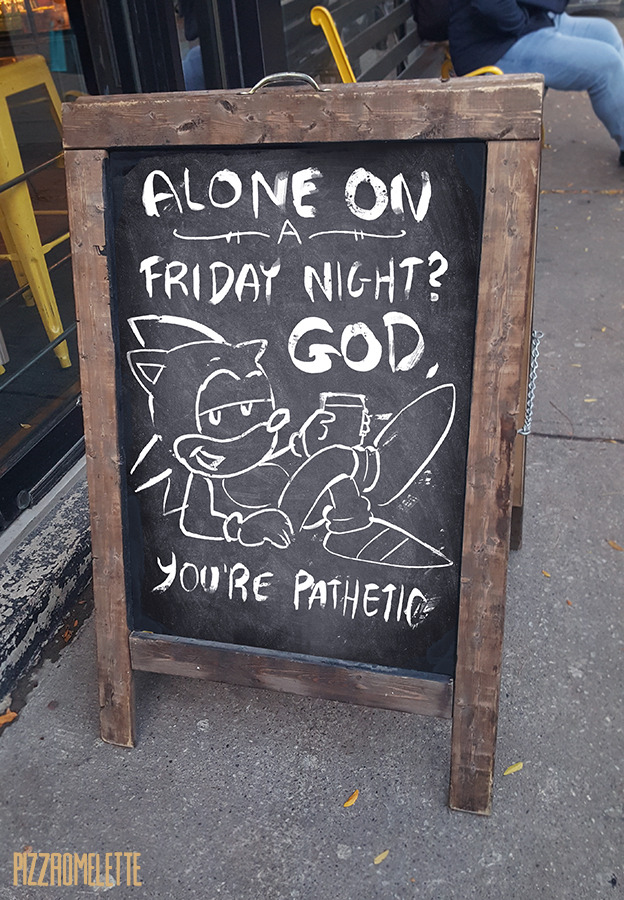 ALONE ON
A
FRIDAY NIGHT?
GOD,
YOU'RE PATHETIC
PIZZAOMELETTE